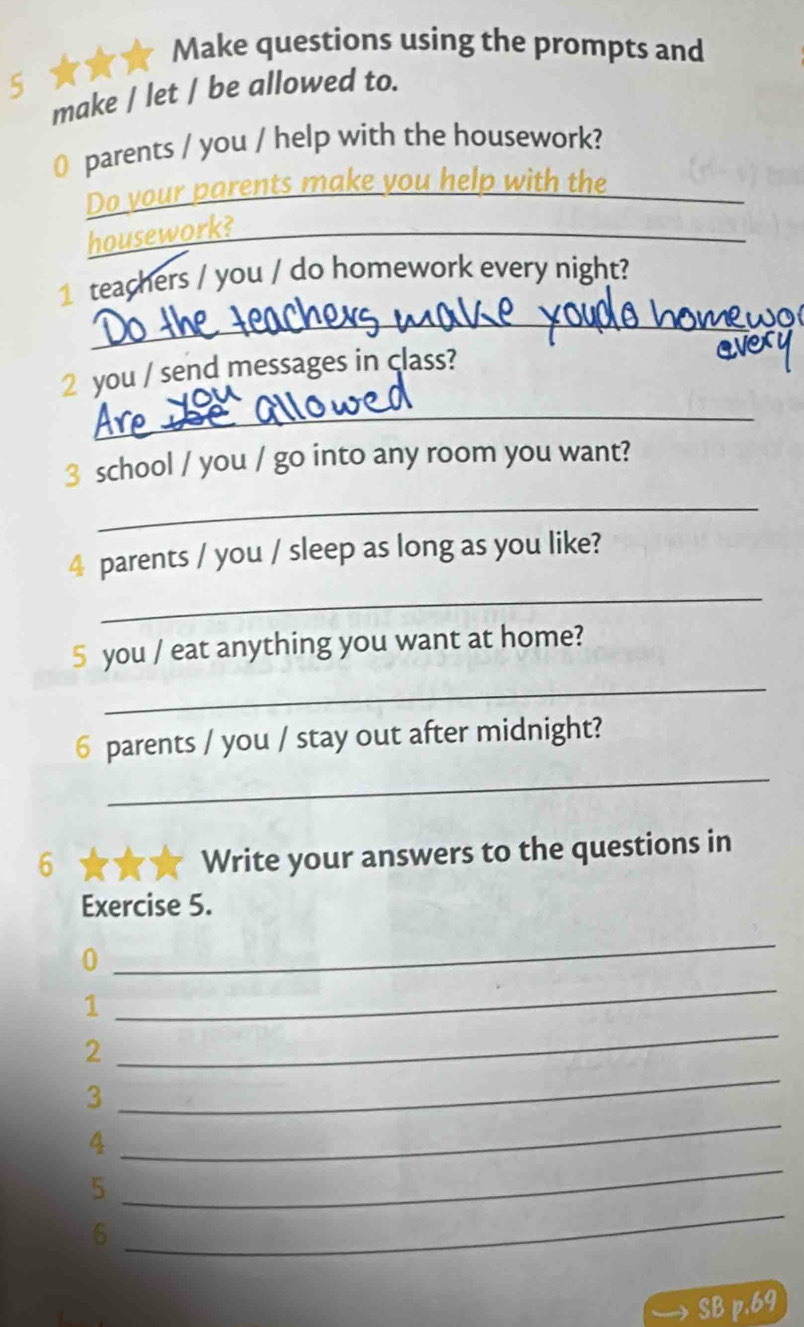 5 Make questions using the prompts and
make / let / be allowed to.
0 parents / you / help with the housework?
Do your parents make you help with the
housework?
1 teachers / you / do homework every night?
Do the teachers make you do homewo
every
2 you / send messages in class?
you
Are be allowed
3 school / you / go into any room you want?
4 parents / you / sleep as long as you like?
5 you / eat anything you want at home?
6 parents / you / stay out after midnight?
6 Write your answers to the questions in
Exercise 5.
0
1
2
3
4
5
6
→ SB p.69